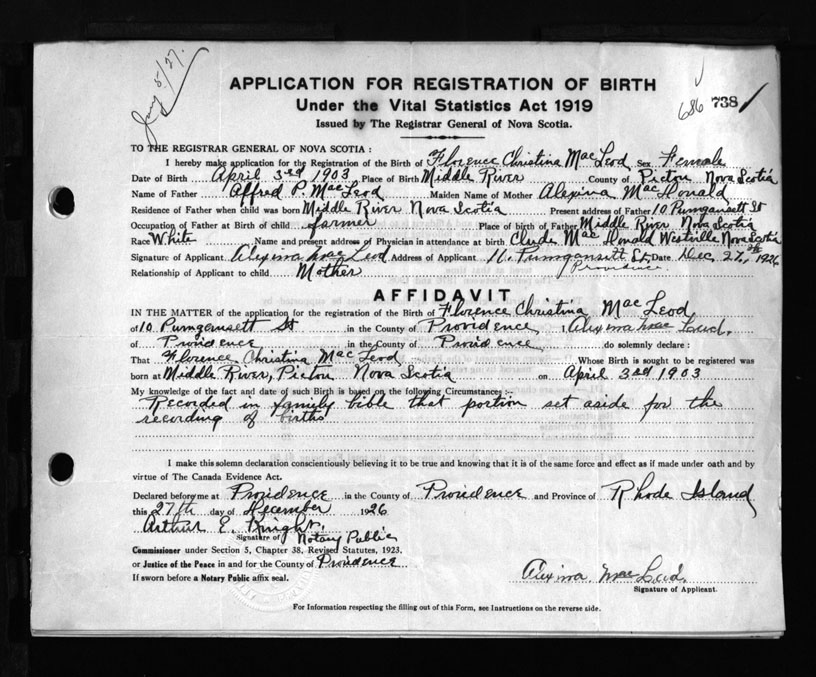 Jany 5/27.
APPLICATION FOR REGISTRATION OF BIRTH
Under the Vital Statistics Act 1919
686 738
Issued by The Registrar General of Nova Scotia.
TO THE REGISTRAR GENERAL OF NOVA SCOTIA :
I hereby make application for the Registration of the Birth of Florence Christina MacLeod Sex Female
Date of Birth April 3rd 1903 Place of Birth Middle River County of Pictou Nova Scotia
Name of Father Alfred P. MacLeod Maiden Name of Mother Alexina MacDonald
Residence of Father when child was born Middle River Nova Scotia Present address of Father 10 Pumgansett St
Occupation of Father at Birth of child farmer Place of birth of Father Middle River Nova Scotia
Race White Name and present address of Physician in attendance at birth Clyde MacDonald Westville Nova Scotia
Signature of Applicant Alexina MacLeod Address of Applicant 10. Pumgansett St. Date Dec. 27, th 1926
Relationship of Applicant to child Mother Providence
AFFIDAVIT
IN THE MATTER of the application for the registration of the Birth of Florence Christina MacLeod
of 10 Pumgansett St in the County of Providence, Alexina MacLeod.
of Providence in the County of Providence do solemnly declare :
That Florence Christina MacLeod Whose Birth is sought to be registered was
born at Middle River, Pictou Nova Scotia on April 3rd 1903
My knowledge of the fact and date of such Birth is based on the following Circumstances :-
Recorded in family bible that portion set aside for the
recording of births
I make this solemn declaration conscientiously believing it to be true and knowing that it is of the same force and effect as if made under oath and by
virtue of The Canada Evidence Act.
Declared before me at Providence in the County of Providence and Province of Rhode Island
this 27th day of December 1926
Arthur E. Knight.
Signature of Notary Public
Commissioner under Section 5, Chapter 38, Revised Statutes, 1923.
or Justice of the Peace in and for the County of Providence
If sworn before a Notary Public affix seal.
Alexina MacLeod.
Signature of Applicant.
For Information respecting the filling out of this Form, see Instructions on the reverse side.